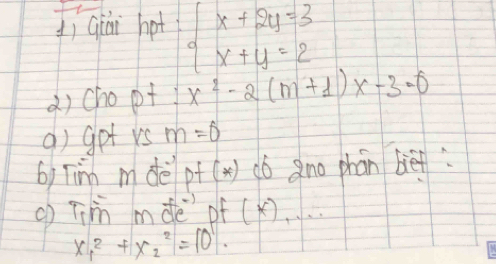 1) Giải hpt: { x + 2y = 3
x + y = 2
2) Cho pt: x² - 2(m+1)x - 3 = 0
a) gpt vs m = 0
b) Tìm m để pt (*) có 2no phân biệt:
c) Tìm m để pt (*)....
x₁² + x₂² = 10.